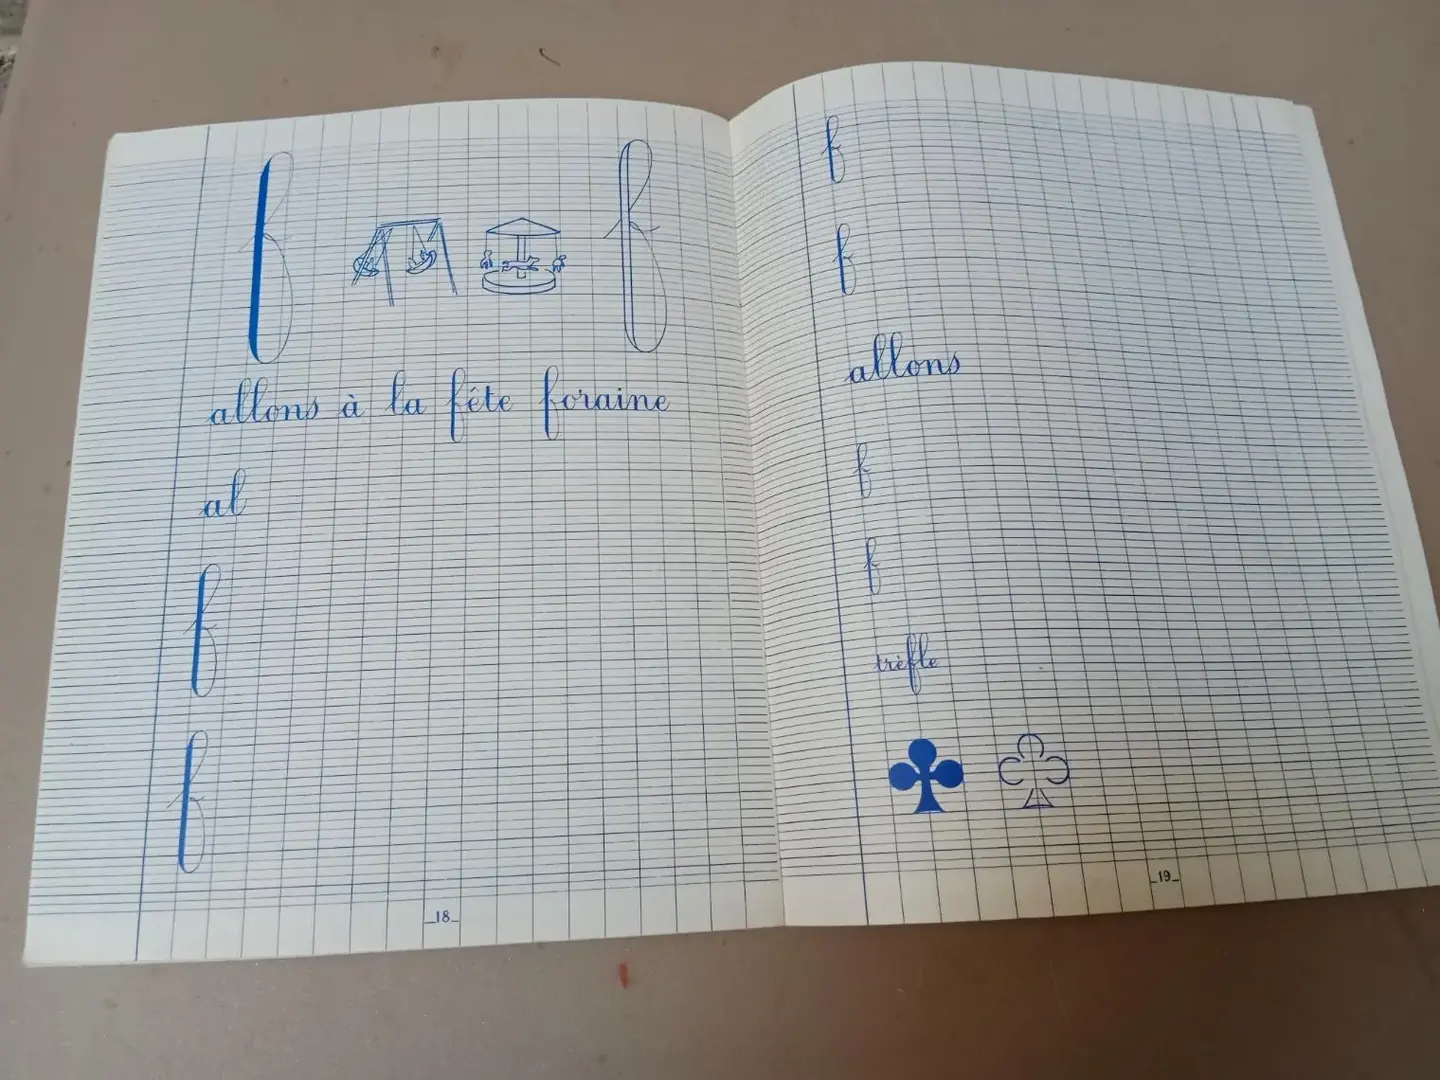 f f
allons à la fête foraine
al
f
f
_18_
f
f
allons
f
f
trèfle
_19_